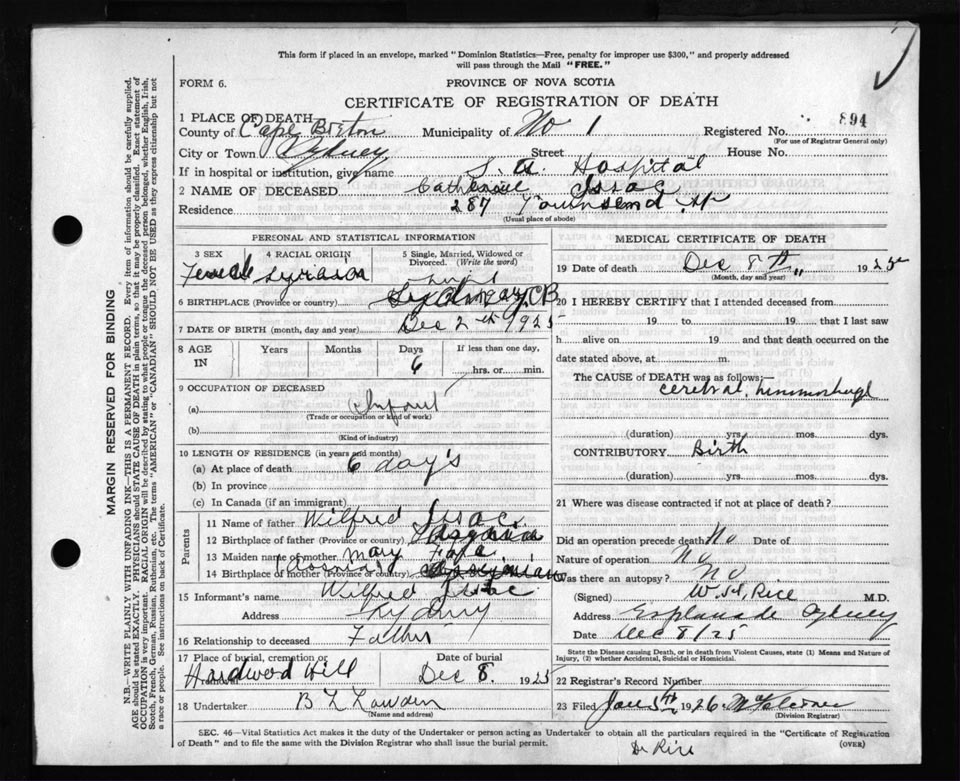 This form if placed in an envelope, marked "Dominion Statistics—Free, penalty for improper use $300," and properly addressed
will pass through the Mail "FREE."
FORM 6.
PROVINCE OF NOVA SCOTIA
CERTIFICATE OF REGISTRATION OF DEATH
1 PLACE OF DEATH
County of Cape Breton Municipality of No 1 Registered No. 894
(For use of Registrar General only)
City or Town Sydney Street House No.
If in hospital or institution, give name S. A. Hospital
2 NAME OF DECEASED Catherine Issac
Residence 287 Townsend St
(Usual place of abode)
PERSONAL AND STATISTICAL INFORMATION
3 SEX Female
4 RACIAL ORIGIN Syrian
5 Single, Married, Widowed or Divorced. (Write the word)
6 BIRTHPLACE (Province or country) Sydney, CB
7 DATE OF BIRTH (month, day and year) Dec 2nd 1925
8 AGE IN Years Months Days 6 If less than one day, hrs. or min.
9 OCCUPATION OF DECEASED
(a) Infant
(Trade or occupation or kind of work)
(b)
(Kind of industry)
10 LENGTH OF RESIDENCE (in years and months)
(a) At place of death 6 day's
(b) In province
(c) In Canada (if an immigrant)
Parents
11 Name of father Wilfred Issac
12 Birthplace of father (Province or country)
13 Maiden name of mother Mary
14 Birthplace of mother (Province or country)
15 Informant's name Wilfred Issac
Address Sydney
16 Relationship to deceased Father
17 Place of burial, cremation or removal Hardwood Hill
Date of burial Dec 8. 1925
18 Undertaker
(Name and address)
MEDICAL CERTIFICATE OF DEATH
19 Date of death Dec 8th 1925
(Month, day and year)
20 I HEREBY CERTIFY that I attended deceased from
19 to 19 that I last saw
h alive on 19 and that death occurred on the
date stated above, at m.
The CAUSE of DEATH was as follows:—
Cerebral
(duration) yrs. mos. dys.
CONTRIBUTORY Birth
(duration) yrs. mos. dys.
21 Where was disease contracted if not at place of death?
Did an operation precede death No Date of
Nature of operation No
Was there an autopsy? No
(Signed) Rice M.D.
Address Esplanade Sydney
Date Dec 8/25
State the Disease causing Death, or in death from Violent Causes, state (1) Means and Nature of
Injury, (2) whether Accidental, Suicidal or Homicidal.
22 Registrar's Record Number
23 Filed Jan 5th 1926
(Division Registrar)
SEC. 46—Vital Statistics Act makes it the duty of the Undertaker or person acting as Undertaker to obtain all the particulars required in the "Certificate of Registration
of Death" and to file the same with the Division Registrar who shall issue the burial permit.
(OVER)
Dr Rice
MARGIN RESERVED FOR BINDING
N.B.—WRITE PLAINLY WITH UNFADING INK—THIS IS A PERMANENT RECORD. Every item of information should be carefully supplied.
AGE should be stated EXACTLY. PHYSICIANS should STATE CAUSE OF DEATH in plain terms, so that it may be properly classified. Exact statement of
OCCUPATION is very important. RACIAL ORIGIN will be described by stating to what people or tongue the deceased person belonged, whether English, Irish,
Scotch, French, German, Russian, Ruthenian, etc. The terms "AMERICAN" or "CANADIAN" SHOULD NOT BE USED as they express citizenship but not
a race or people. See instructions on back of Certificate.